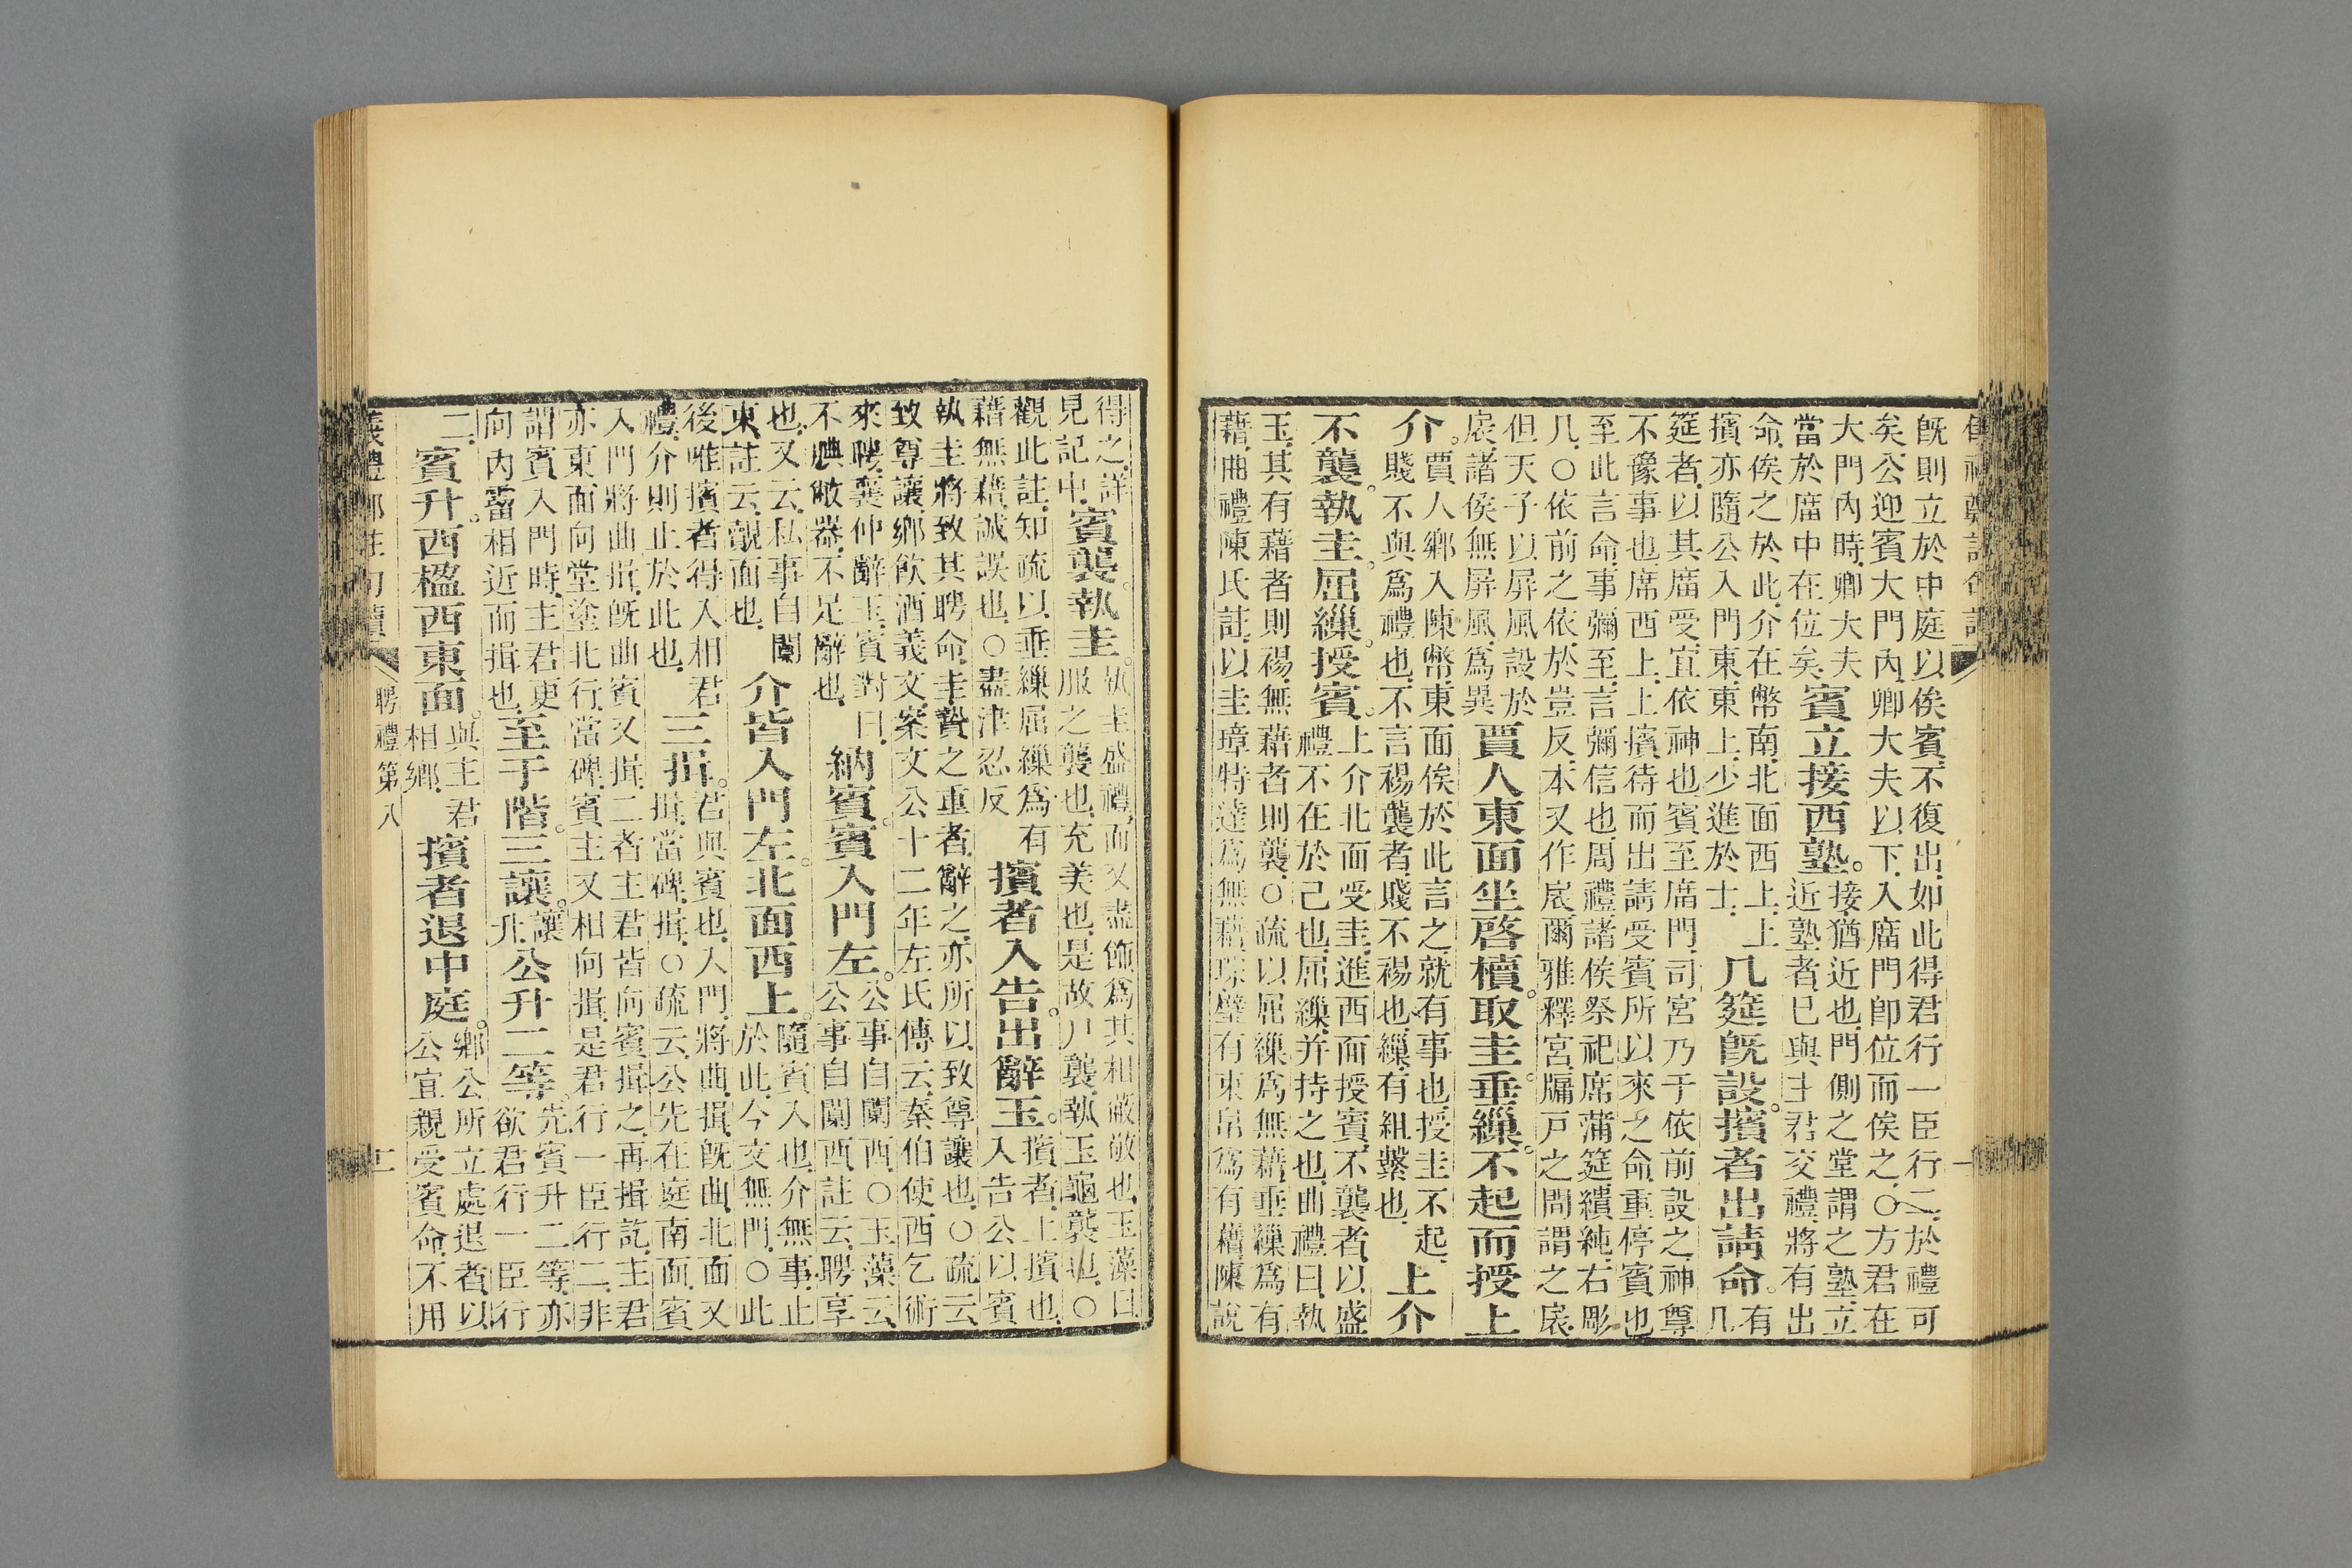 既則立於中庭以俟賓.不復出.如此得君行一臣行二.於禮可
矣.公迎賓大門內.卿大夫以下.入廟門卽位而俟之.○方君在
大門內時.卿大夫
當於廟中在位矣.
賓立接西塾。
接猶近也.門側之堂謂之塾.立
近塾者已與主君交禮.將有出
命.俟之於此.介在幣南.北面西上.上
擯亦隨公入門東東上.少進於士.
几筵既設。擯者出請命。
有
几
筵者.以其廟受.宜依神也.賓至廟門.司宮乃于依前設之.神尊
不豫事也.席西上.上擯待而出請受賓所以來之命.重停賓也
至此言命.事彌至.言彌信也.周禮諸侯祭祀席蒲筵繢純.右彫
几.○依前之依.於豈反.本又作扆.爾雅釋宮.牖戶之間謂之扆.
但天子以屏風設於
扆.諸侯無屏風.爲異
賈人東面坐啓櫝。取圭垂繅。不起而授上
介。
賈人鄉入陳幣.東面俟於此.言之.就有事也.授圭不起.
賤不與爲禮也.不言裼襲者.賤不裼也.繅有組繫也.
上介
不襲。執圭。屈繅。授賓。
上介北面受圭.進西面授賓.不襲者.以盛
禮不在於己也.屈繅并持之也.曲禮曰.執
玉.其有藉者則裼.無藉者則襲.○疏以屈繅爲無藉.垂繅爲有
藉.曲禮陳氏註.以圭璋特達爲無藉.琮璧有束帛爲有藉.陳說
得之.詳
見記中.
賓襲。執圭。
執圭盛禮.而又盡飾.爲其相蔽敬也.玉藻曰
服之襲也.充美也.是故尸襲.執玉龜襲也.○
觀此註.知疏以垂繅屈繅爲有
藉無藉.誠誤也.○盡津忍反
擯者入告出辭玉。
擯者.上擯也
入告公以賓
執圭將致其聘命.圭贄之重者.辭之.亦所以致尊讓也.○疏云
致尊讓.鄉飲酒義文.案文公十二年左氏傳云.秦伯使西乞術
來聘.襄仲辭玉.賓對曰.
不腆敝器.不足辭也.
納賓。賓入門左。
公事自闑西.○玉藻云
公事自闑西.註云.聘享
也.又云.私事自闑
東.註云.覿面也.
介皆入門左。北面西上。
隨賓入也.介無事.止
於此.今文無門.○此
後唯擯者得入相君
禮.介則止於此也.
三揖。
君與賓也.入門將曲揖.既曲北面又
揖.當碑揖.○疏云.公先在庭南面.賓
入門將曲揖.既曲賓又揖.二者主君皆向賓揖之.再揖訖.主君
亦東面向堂塗北行.當碑.賓主又相向揖.是君行一臣行二.非
謂賓入門時.主君更
向內霤相近而揖也.
至于階。三讓。
讓
升.
公升二等。
先賓升二等.亦
欲君行一臣行
二.
賓升。西楹西東面。
與主君
相鄉.
擯者退中庭。
鄉公所立處.退者.以
公宜親受賓命.不用
聘禮第八